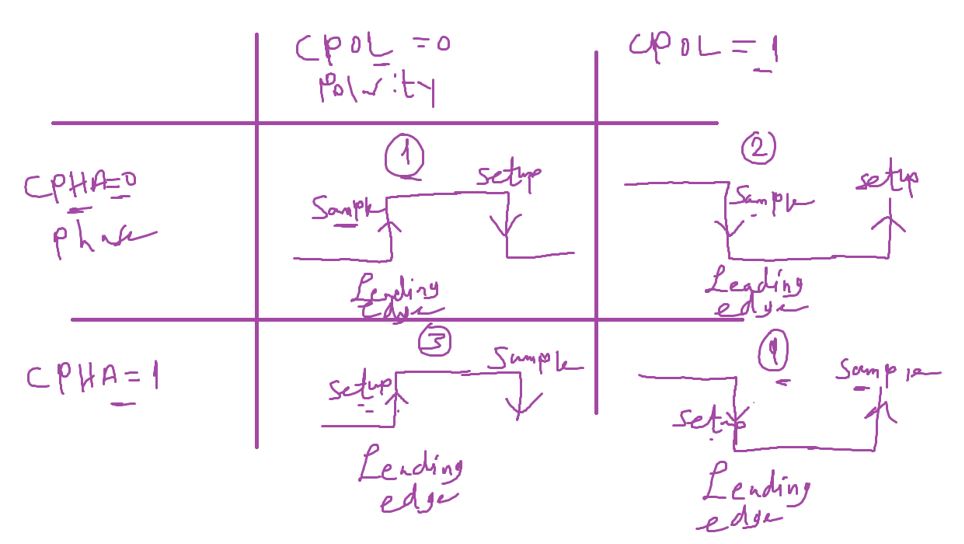 CPOL =0
Polarity
CPOL = 1
CPHA=0
phase
1
Sample
setup
Leading
edge
2
Sample
setup
Leading
edge
CPHA=1
3
setup
Sample
Leading
edge
setup
Sample
Leading
edge